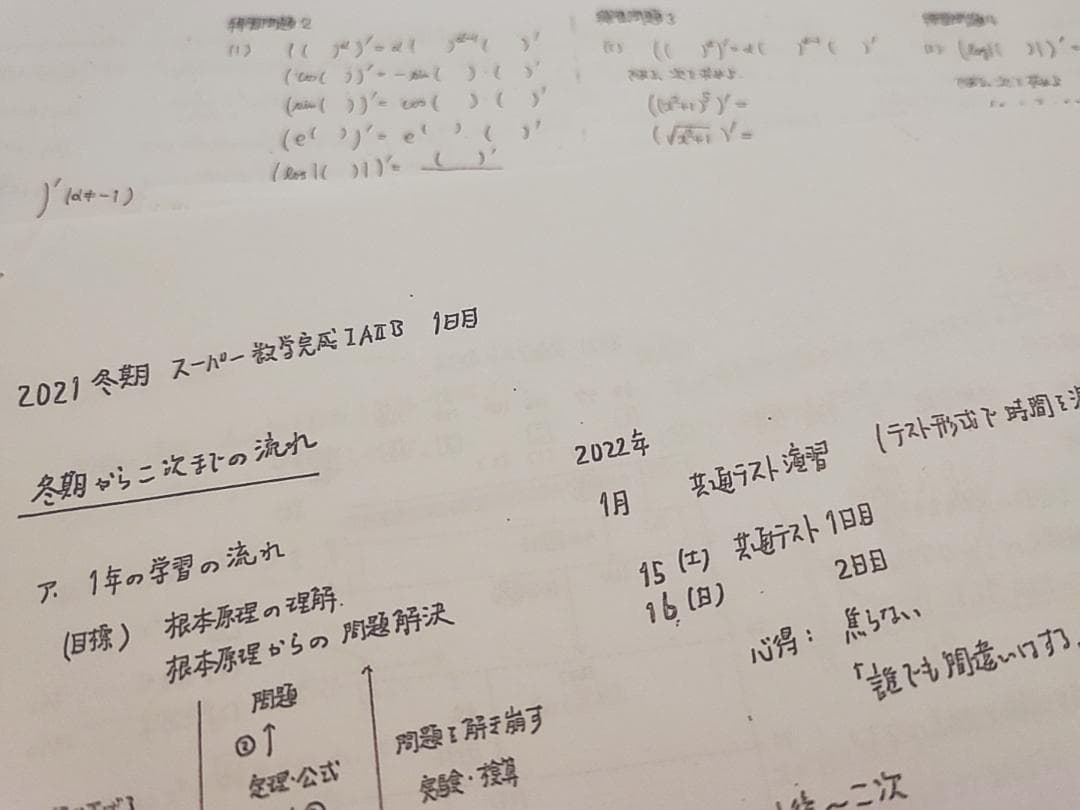 練習問題2
(1) (( )^α)' = α( )^{α-1}( )'
(cos( ))' = -sin( )・( )'
(sin( ))' = cos( )・( )'
(e^{( )})' = e^{( )}・( )'
(log|( )|)' = ( )'
)'(α≠-1)
練習問題3
(1) (( )^α)' = α( )^{α-1}( )'
((x²+1)⁵)' =
(√x²+1)' =
(log|( )|)' =
2021 冬期 スーパー数学完成ⅠAⅡB 1日目
冬期から二次までの流れ
ア. 1年の学習の流れ
(目標) 根本原理の理解.
根本原理からの問題解決
問題
②↑
定理・公式
問題を解き崩す
実験・検算
2022年
1月 共通テスト演習 (テスト形式で時間を
15(土) 共通テスト1日目
16(日) 2日目
心得: 焦らない
「誰でも間違いはする.
～二次